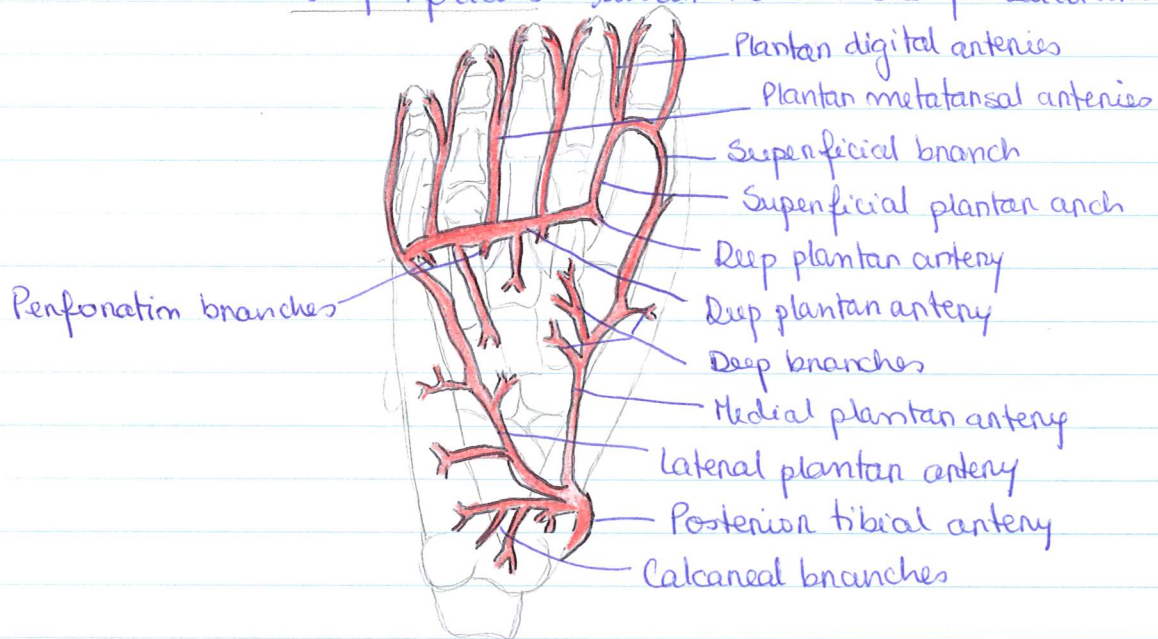 Plantar digital arteries
Plantar metatarsal arteries
Superficial branch
Superficial plantar arch
Deep plantar artery
Perforatin branches
Deep plantar artery
Deep branches
Medial plantar artery
Lateral plantar artery
Posterior tibial artery
Calcaneal branches